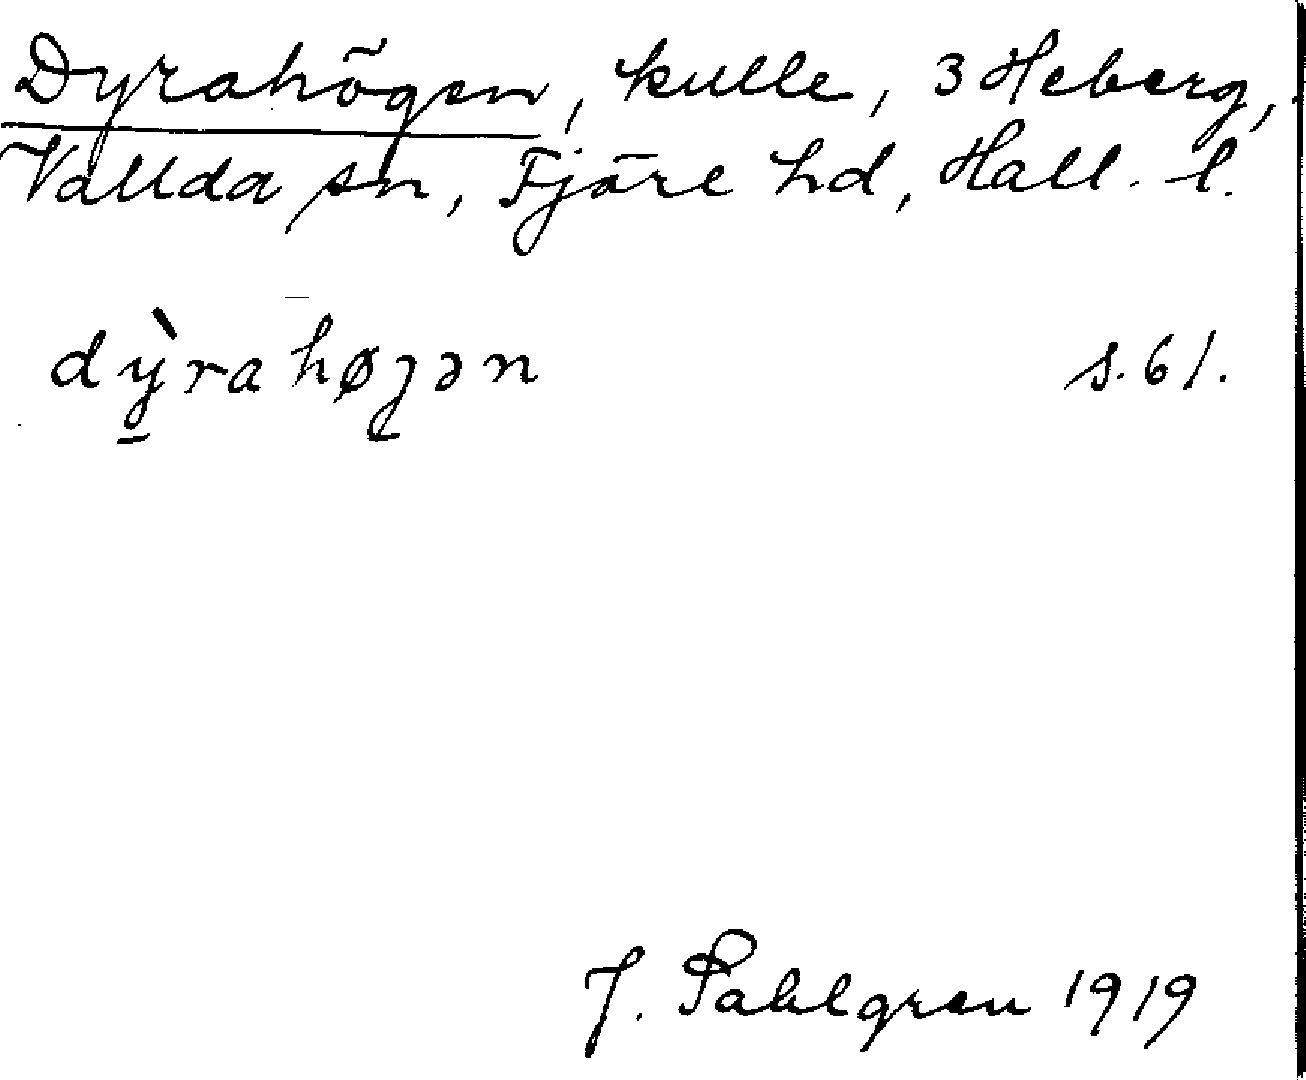 Dyrahögen, kulle, 3 Heberg,
Vallda sn, Fjäre hd, Hall. l.
dỳ̱rahøʒən s. 61.
J. Sahlgren 1919